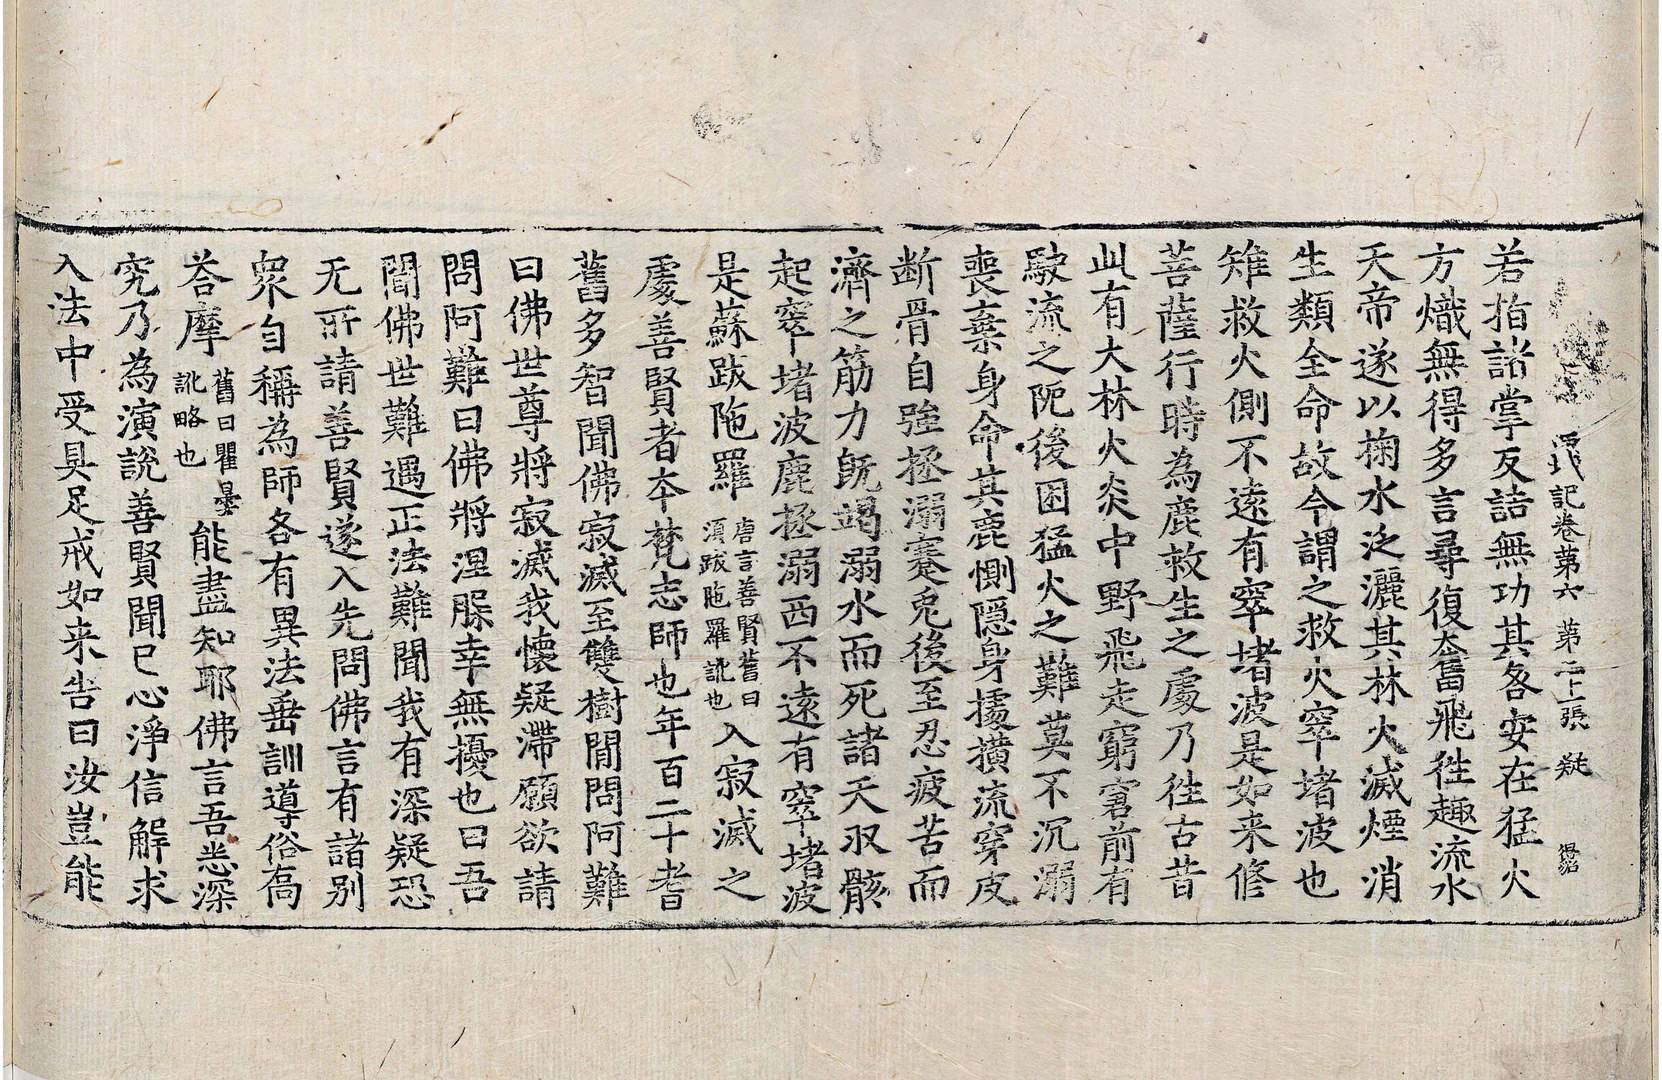 西域記卷第六 第二十一張 疑
若指諸掌反詰無功其各安在猛火
方熾無得多言尋復奮飛徃趣流水
天帝遂以掬水泛灑其林火滅煙消
生類全命故今謂之救火窣堵波也
雉救火側不遠有窣堵波是如来修
菩薩行時為鹿救生之處乃徃古昔
此有大林火炎中野飛走窮窘前有
駛流之阨後困猛火之難莫不沉溺
喪棄身命其鹿惻隱身據撗流穿皮
断骨自強拯溺蹇兎後至忍疲苦而
濟之筋力旣竭溺水而死諸天収骸
起窣堵波鹿拯溺西不遠有窣堵波
是蘇跋陁羅唐言善賢舊曰須跋陁羅訛也入寂滅之
處善賢者夲梵志師也年百二十耆
舊多智聞佛寂滅至雙樹間問阿難
曰佛世尊將寂滅我懷疑滯願欲請
問阿難曰佛將涅槃幸無擾也曰吾
聞佛世難遇正法難聞我有深疑恐
无所請善賢遂入先問佛言有諸別
衆自稱為師各有異法垂訓導俗喬
荅摩舊曰瞿曇訛略也能盡知耶佛言吾悉深
究乃為演說善賢聞已心淨信解求
入法中受具足戒如来告曰汝豈能